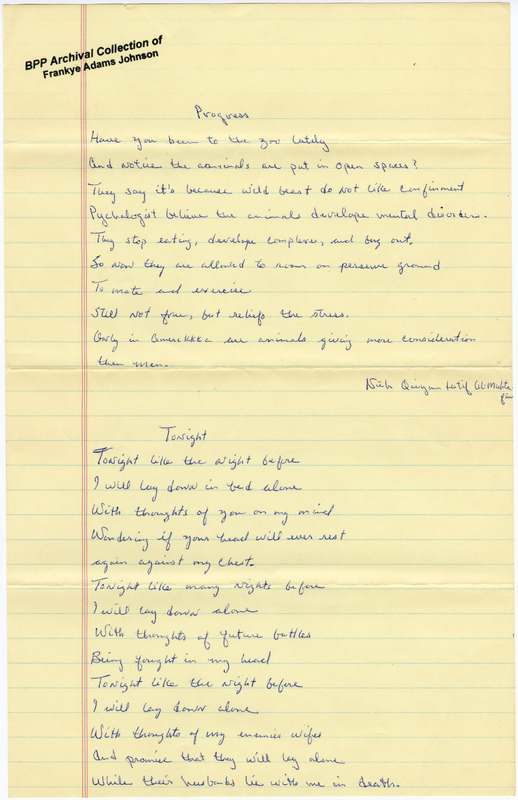 BPP Archival Collection of
Frankye Adams Johnson
Progress
Have you been to the zoo lately
And notice the animals are put in open spaces?
They say it's because wild beast do not like confinment
Psychologist believe the animals develope mental disorders.
They stop eating, develope complexes, and bug out.
So now they are allowed to roam on perserve ground
To mate and exercise
Still not free, but reliefs the stress.
Only in Amerikkka are animals giving more consideration
then men.
Latif Al-
Tonight
Tonight like the night before
I will lay down in bed alone
With thoughts of you on my mind
Wondering if your head will ever rest
again against my chest.
Tonight like many nights before
I will lay down alone
With thoughts of future battles
Being fought in my head
Tonight like the night before
I will lay down alone
With thoughts of my enemies wifes
And promise that they will lay alone
While their husbands lie with me in death.